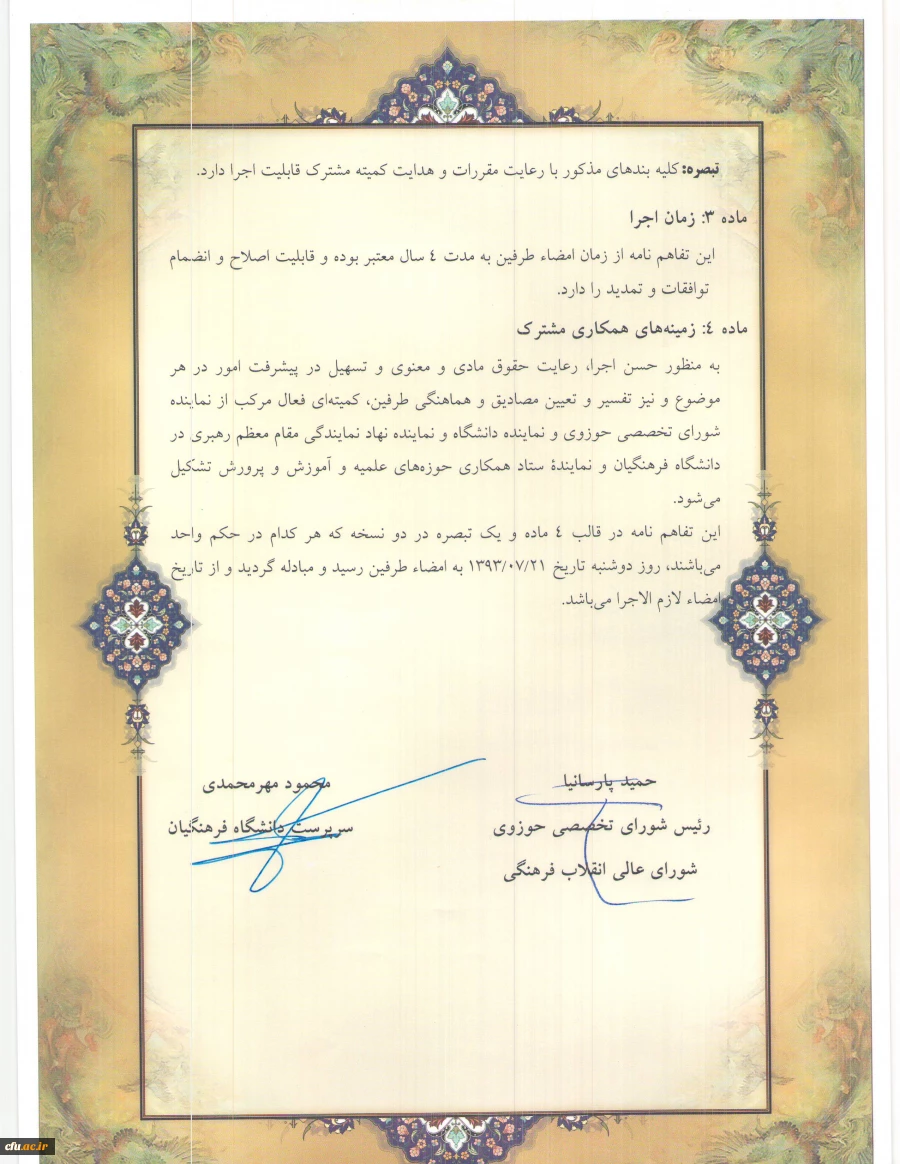 تبصره: کلیه بندهای مذکور با رعایت مقررات و هدایت کمیته مشترک قابلیت اجرا دارد.
ماده ۳: زمان اجرا
این تفاهم نامه از زمان امضاء طرفین به مدت ٤ سال معتبر بوده و قابلیت اصلاح و انضمام
توافقات و تمدید را دارد.
ماده ٤: زمینه‌های همکاری مشترک
به منظور حسن اجرا، رعایت حقوق مادی و معنوی و تسهیل در پیشرفت امور در هر
موضوع و نیز تفسیر و تعیین مصادیق و هماهنگی طرفین، کمیته‌ای فعال مرکب از نماینده
شورای تخصصی حوزوی و نماینده دانشگاه و نماینده نهاد نمایندگی مقام معظم رهبری در
دانشگاه فرهنگیان و نمایندۀ ستاد همکاری حوزه‌های علمیه و آموزش و پرورش تشکیل
می‌شود.
این تفاهم نامه در قالب ٤ ماده و یک تبصره در دو نسخه که هر کدام در حکم واحد
می‌باشند، روز دوشنبه تاریخ ۱۳۹۳/۰۷/۲۱ به امضاء طرفین رسید و مبادله گردید و از تاریخ
امضاء لازم الاجرا می‌باشد.
حمید پارسانیا
رئیس شورای تخصصی حوزوی
شورای عالی انقلاب فرهنگی
محمود مهرمحمدی
سرپرست دانشگاه فرهنگیان
cfu.ac.ir